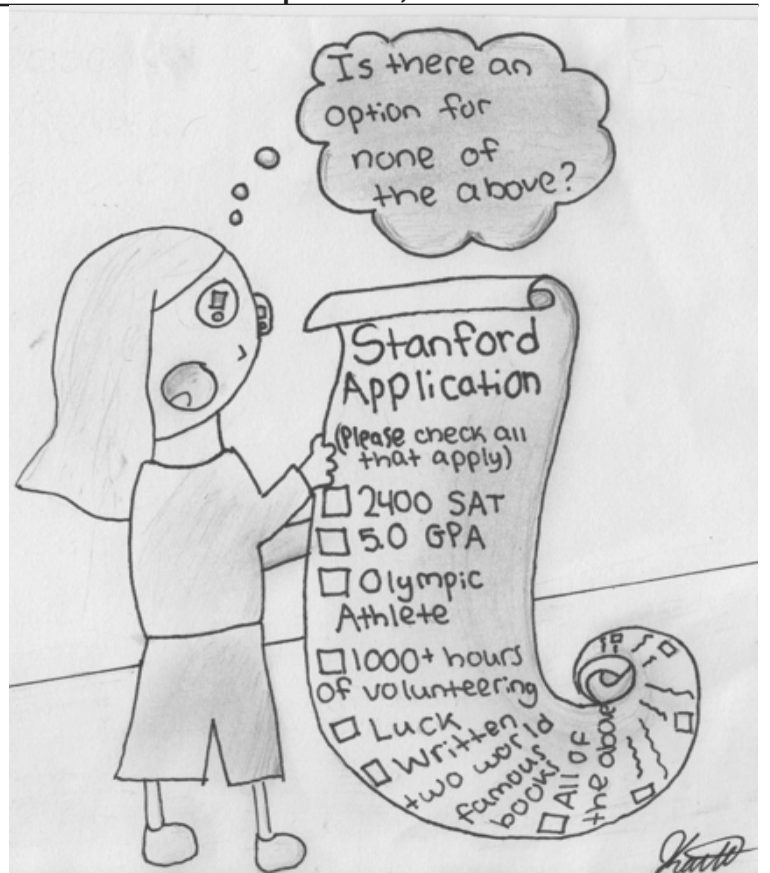 Is there an
option for
none of
the above?
Stanford
Application
(Please check all
that apply)
2400 SAT
5.0 GPA
Olympic
Athlete
1000+ hours
of volunteering
Luck
Written
two world
famous
books
All of
the above